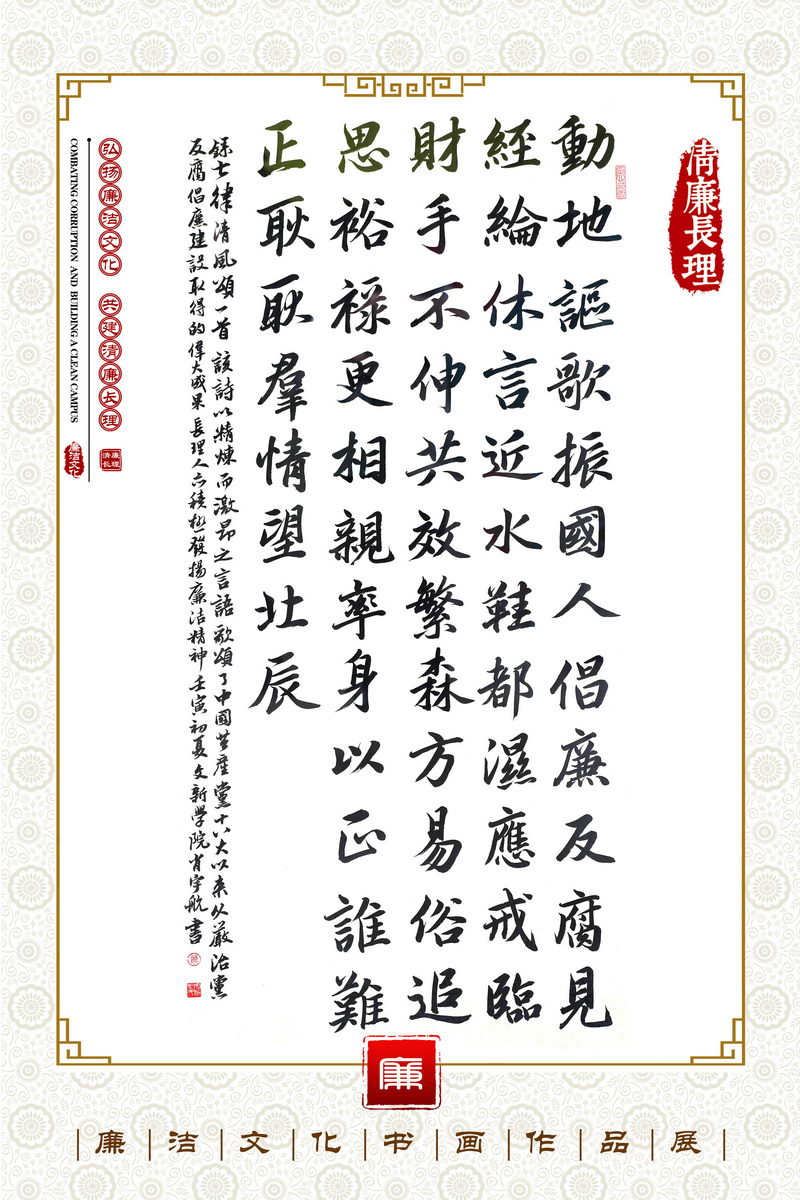 清廉長理
動地謳歌振國人倡廉反腐見
經綸休言近水鞋都濕應戒臨
財手不伸共效繁森方易俗追
思裕祿更相親率身以正誰難
正耿耿羣情望北辰
錄七律清風頌一首該詩以精煉而激昂之言語歌頌了中國共產黨十八大以來從嚴治黨
反腐倡廉建設取得的偉大成果長理人亦積極發揚廉洁精神壬寅初夏文新學院肖宇航書
弘扬廉洁文化 共建清廉长理
COMBATING CORRUPTION AND BUILDING A CLEAN CAMPUS
廉洁文化
清廉长理
廉
廉洁文化书画作品展